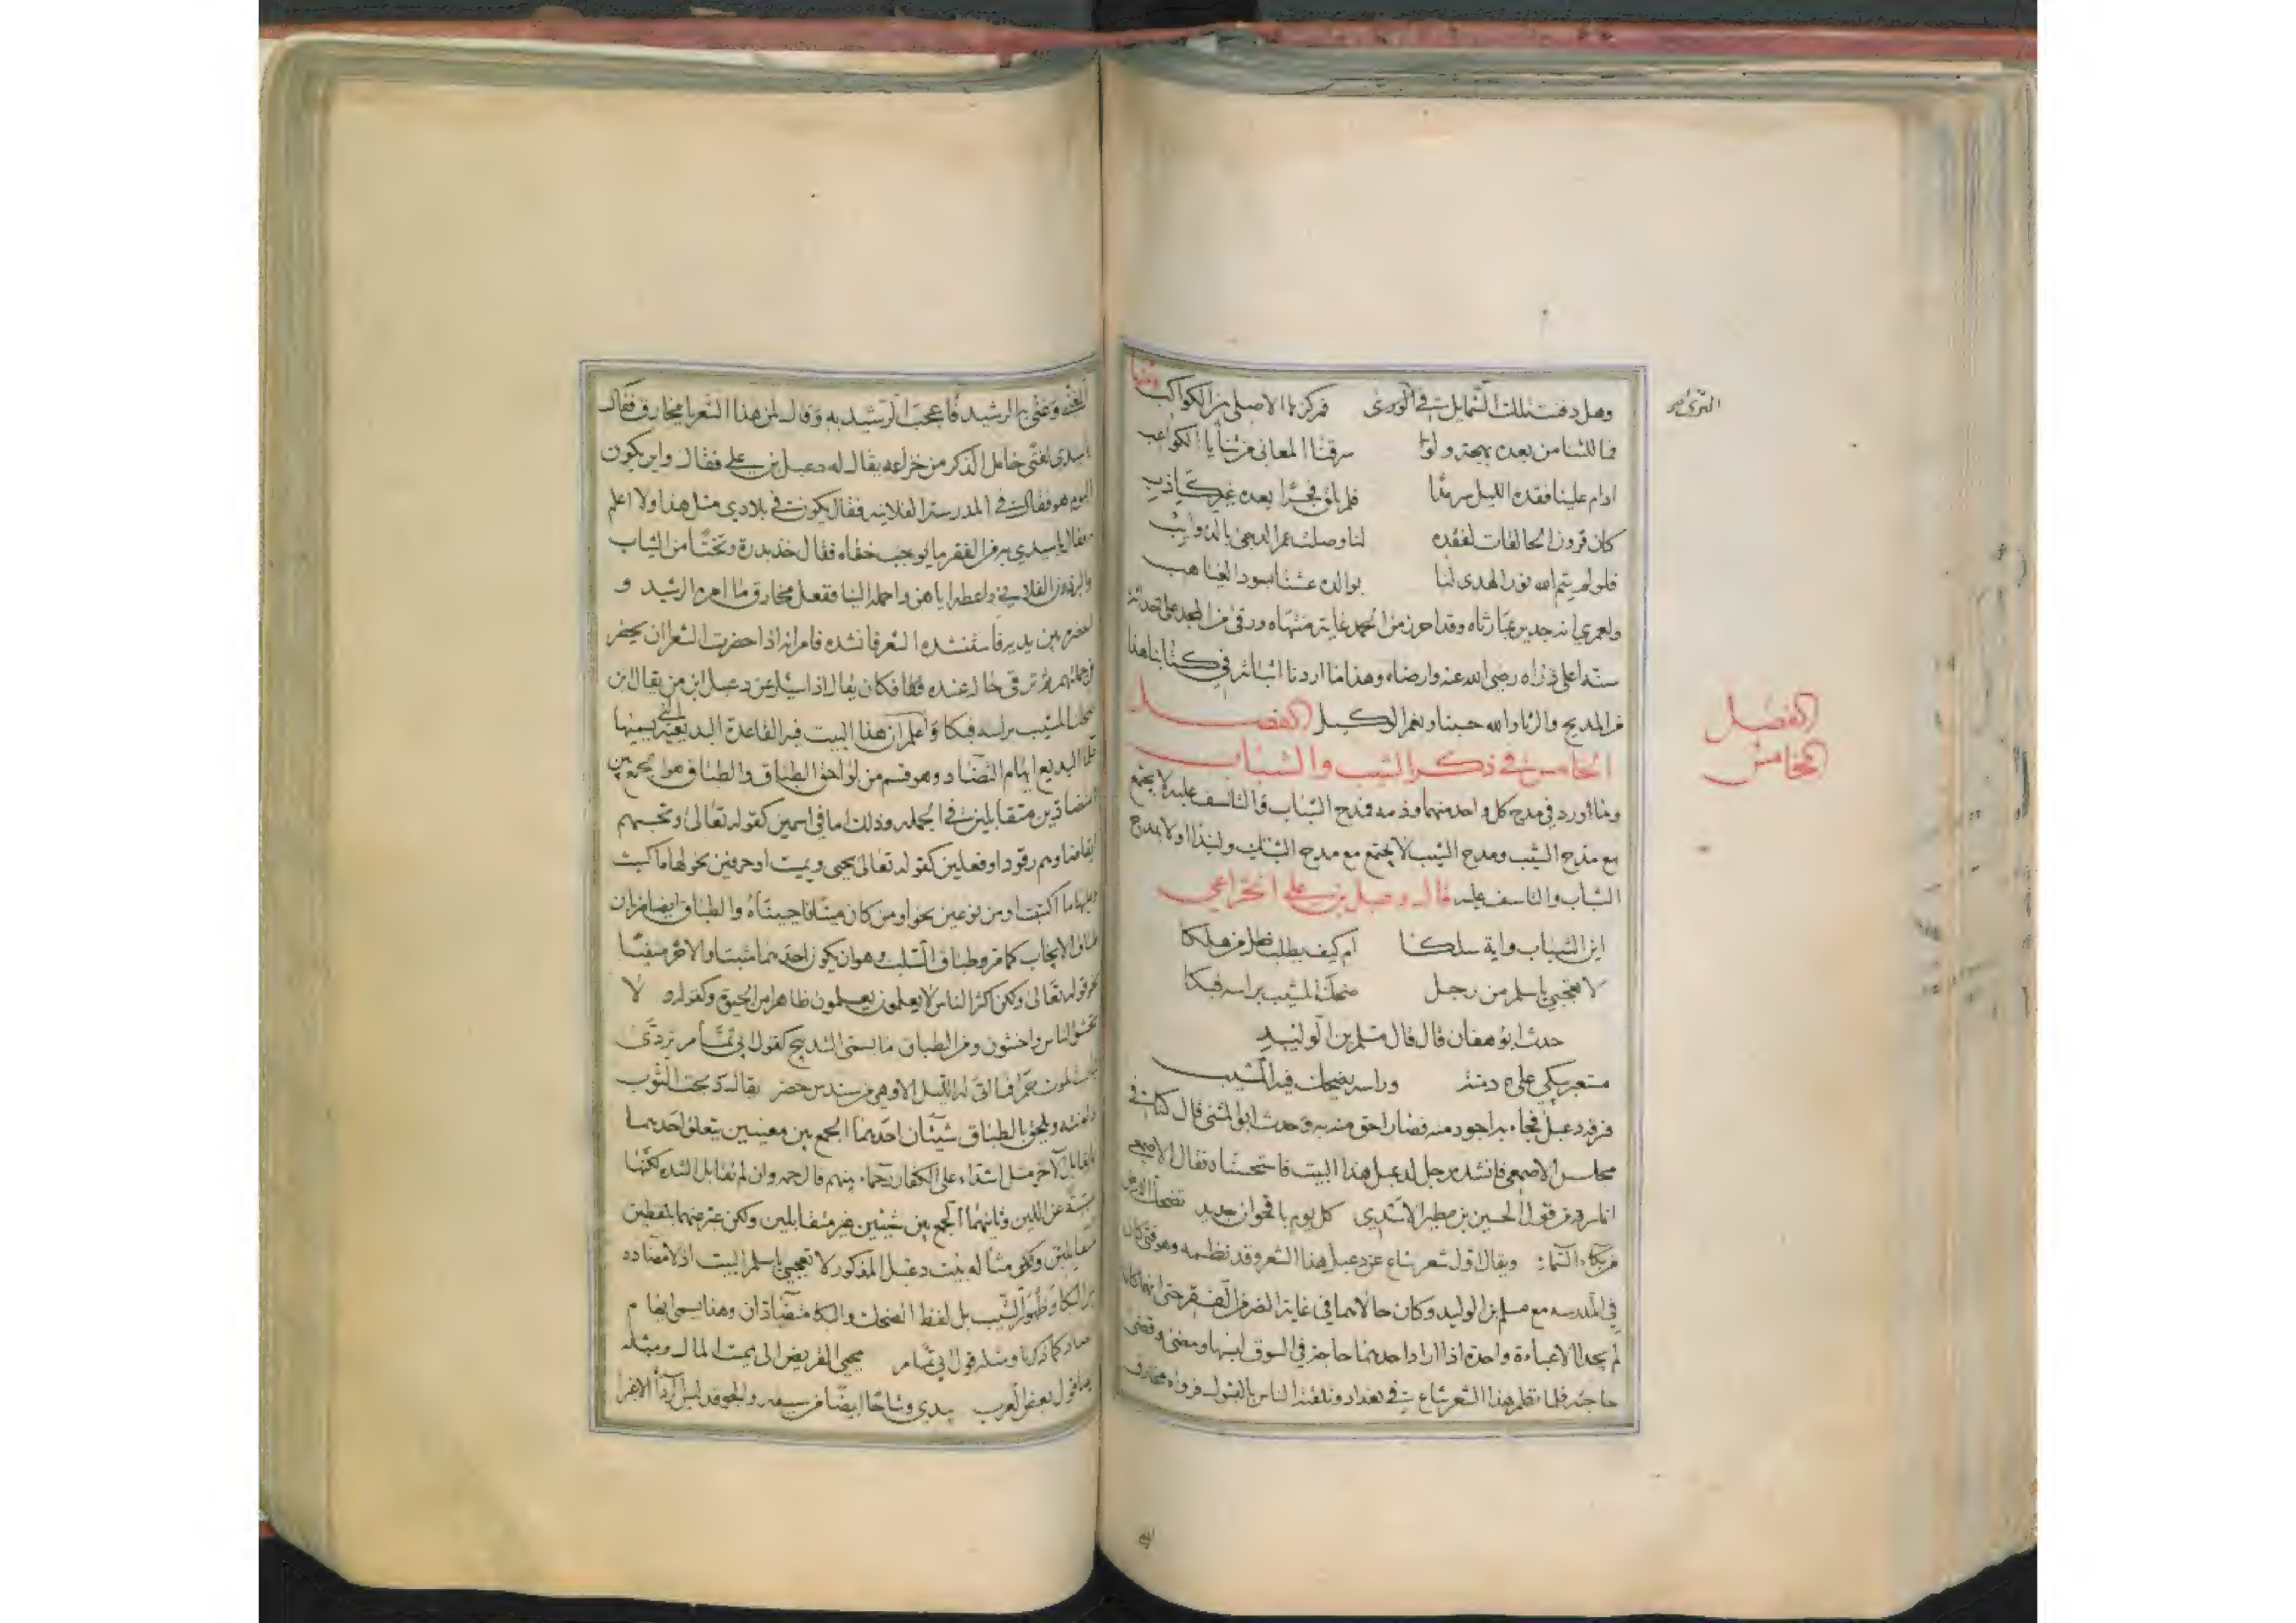 ومنها
وهل دفنت تلك الشمايل في الورى فمركزها الاصلي بين الكواكب
فما للثنا من بعده بهجة ولو سرقنا المعاني من ثنايا الكواعب
ادام علينا فقده الليل سرمدا فلم نلق فجرا بعده غير كاذب
كان قرون الحالقات لفقده لنا وصلت عمر الدجى بالذوايب
فلو لم يتم الله نور الهدى لنا بوالده عشنا بسود الغياهب
ولعمري انه جدير بمبارثاه وقد احرز من الحمد غاية منتهاه ورقى من المجد على حداثة
سنه اعلى ذراه رضي الله عنه وارضاه وهذا ما اردنا اثباته في كتابنا هذا
من المديح والرثا والله حسبنا ونعم الوكيل الفصل
الخامس في ذكر الشيب والشباب
وما اورد في مدح كل واحد منهما وذمه فمدح الشباب والتاسف عليه لا يجتمع
مع مدح الشيب ومدح الشيب لا يجتمع مع مدح الشباب ولنبدا اولا بمدح
الشباب والتاسف عليه قال دعبل بن علي الخزاعي
اين الشباب واية سلكا ام كيف يطلب ضل من هلكا
لا تعجبي يا سلم من رجل ضحك المشيب براسه فبكا
حدث ابو هفان قال قال مسلم بن الوليد
مستعبر يبكي على دمنة وراسه يضحك فيه المشيب
فسرقه دعبل فجاء به اجود منه فصار احق منه به وحدث ابو المثنى قال كنا في
مجلس الاصمعي فانشده رجل لدعبل هذا البيت فاستحسناه فقال الاصمعي
انما سرقه من قول الحسين بن مطير الاسدي كل يوم باقحوان جديد تضحك الارض
من بكاء السماء ويقال اول شعر شاع عن دعبل هذا الشعر وقد نظمه وهو فتى كان
في المدرسه مع مسلم بن الوليد وكان حالاهما في غاية الضر والفقر حتى انهما كانا
لم يجدا الا عباءة واحدة اذا اراد احدهما حاجة في السوق لبسها ومضى وقضى
حاجته فلما نظم هذا الشعر شاع في بغداد وتلقته الناس بالقبول فرواه مخارق
الفصل
الخامس
المغني وغنى به الرشيد فاعجب الرشيد به وقال لمن هذا الشعر يا مخارق فقال
يا سيدي لفتى خامل الذكر من خزاعه يقال له دعبل بن علي فقال واين يكون
اليوم هو فقال في المدرسة الفلانيه فقال يكون في بلادي مثل هذا ولا اعلم
فقال يا سيدي به من الفقر ما يوجب خفاه فقال خذ بدرة وتختا من الثياب
والبرذون الفلاني واعطه اياهن واحمله الينا ففعل مخارق ما امره الرشيد و
احضره بين يديه فاستنشده الشعر فانشده فامر انه اذا حضرت الشعرا ان يحضر
في جملتهم ثم ترقى حاله عنده فكان يقال اذا سئل عن دعبل ابن من يقال ابن
ضحك المشيب براسه فبكا واعلم ان هذا البيت فيه القاعدة البديعية التي يسميها
علما البديع ايهام التضاد وهو قسم من لواحق الطباق والطباق هو الجمع بين
متضادين متقابلين في الجمله وذلك اما في اسمين كقوله تعالى وتحسبهم
ايقاضا وهم رقود او فعلين كقوله تعالى يحيي ويميت او حرفين نحو لها ما كسبت
وعليها ما اكتسبت او من نوعين نحو اومن كان ميتا فاحييناه والطباق ايضا ضربان
طباق الايجاب كما مر وطباق السلب وهو ان يكون احدهما مثبتا والاخر منفيا
نحو قوله تعالى ولكن اكثر الناس لا يعلمون يعلمون ظاهرا من الحيوة وكقوله و لا
تخشوا الناس واخشون ومن الطباق ما يسمى التدبيج كقول ابي تمام تردى
ثياب الموت حمرا فما اتى لها الليل الا وهي من سندس خضر يقال دبجت الثوب
ونقشه ويلحق بالطباق شيئان احدهما الجمع بين معنيين يتعلق احدهما
بما يقابل الاخر مثل اشداء على الكفار رحماء بينهم فالرحمه وان لم تقابل الشده لكنها
مسببة عن اللين وثانيهما الجمع بين شيئين غير متقابلين ولكن عبر عنهما بلفظين
متقابلين ومثاله بيت دعبل المذكور لا تعجبي يا سلم البيت اذ لا مضاده
بين البكا وظهور الشيب بل لفظ الضحك والبكا متضادان وهذا يسمى ايهام
تضاد كما ذكرنا ومثله قول ابي تمام يحيي القريض الى مميت المال ومثله
ايضا قول بعض العرب يبدي وشاحا ابيضا من سيبه والجو قد لبس الرداء الاغبرا